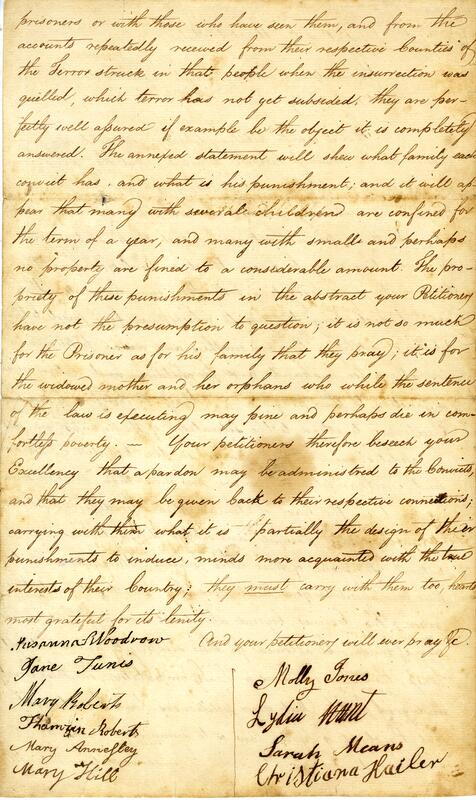 prisoners or with those who have seen them, and from the
accounts repeatedly received from their respective Counties of
the Terror struck in that people when the insurrection was
quelled, which terror has not yet subsided. they are per-
fectly well assured if example be the object it is completely
answered. The annexed statement will shew what family each
convict has, and what is his punishment; and it will ap
pear that many with several children are confined for
the term of a year, and many with small and perhaps
no property are fined to a considerable amount. The pro-
priety of these punishments in the abstract your Petitioners
have not the presumption to question; it is not so much
for the Prisoner as for his family that they pray; it is for
the widowed mother and her orphans who while the sentence
of the law is executing may pine and perhaps die in com-
fortless poverty. — Your petitioners therefore beseech your
Excellency that a pardon may be administred to the Convicts,
and that they may be given back to their respective connections;
carrying with them what it is partially the design of these
punishments to induce, minds more acquainted with the true
interests of their Country; they must carry with them too, hearts
most grateful for its lenity.
And your petitioners will ever pray &c.
Susanna Woodrow
Jane Tunis
Mary Roberts
Thamzin Roberts
Mary Annesley
Mary Hill
Molly Jones
Lydia Hunt
Sarah Means
Christiana Hailer